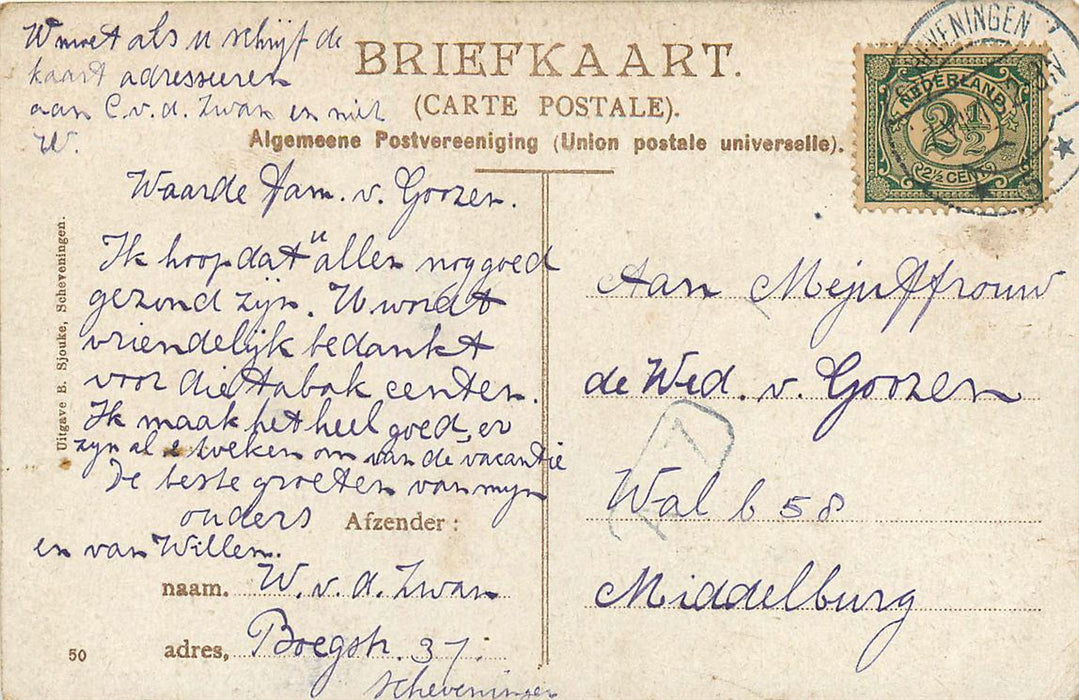 W moet als u schrijf de
kaart adresseren
aan C. v. d. Zwan en niet
W.
BRIEFKAART.
(CARTE POSTALE).
Algemeene Postvereeniging (Union postale universelle).
NEDERLAND
2½
2½ CENT
SCHEVENINGEN
Waarde Fam. v. Goozen.
Ik hoop dat u allen nog goed
gezond zijn. U wordt
vriendelijk bedankt
voor die tabak centen.
Ik maak het heel goed, er
zijn al 2 weken om van de vacantie
De beste groeten van mijn
ouders
en van Willem.
Afzender:
naam. W. v. d. Zwan
adres, Boegstr. 37.
Scheveningen
50
Uitgave B. Sjouke, Scheveningen.
Aan Mejuffrouw
de Wed. v. Goozen
Wal b 58
Middelburg